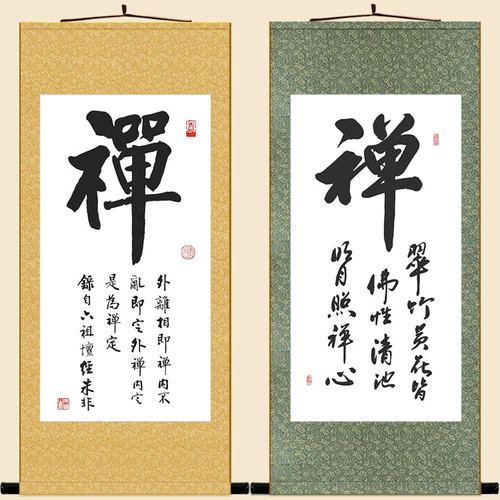 禪
外離相即禪内不
亂即定外禪内定
是為禅定
錄自六祖壇經朱非
禅
翠竹黄花皆
佛性清池
明月照禅心